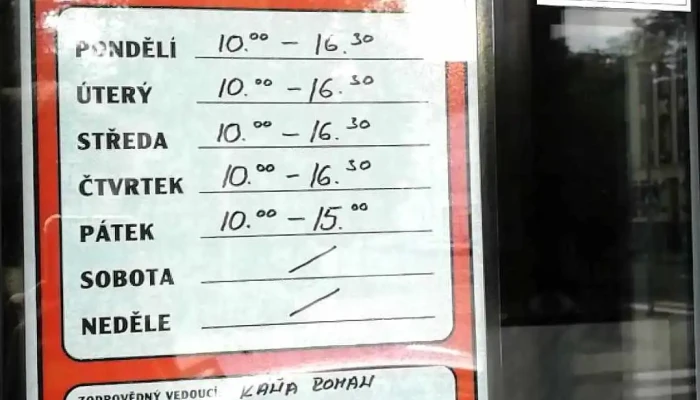 PONDĚLÍ 10.00 – 16.30
ÚTERÝ 10.00 – 16.30
STŘEDA 10.00 – 16.30
ČTVRTEK 10.00 – 16.30
PÁTEK 10.00 – 15.00
SOBOTA /
NEDĚLE /
ZODPOVĚDNÝ VEDOUCÍ KAŇA ROMAN